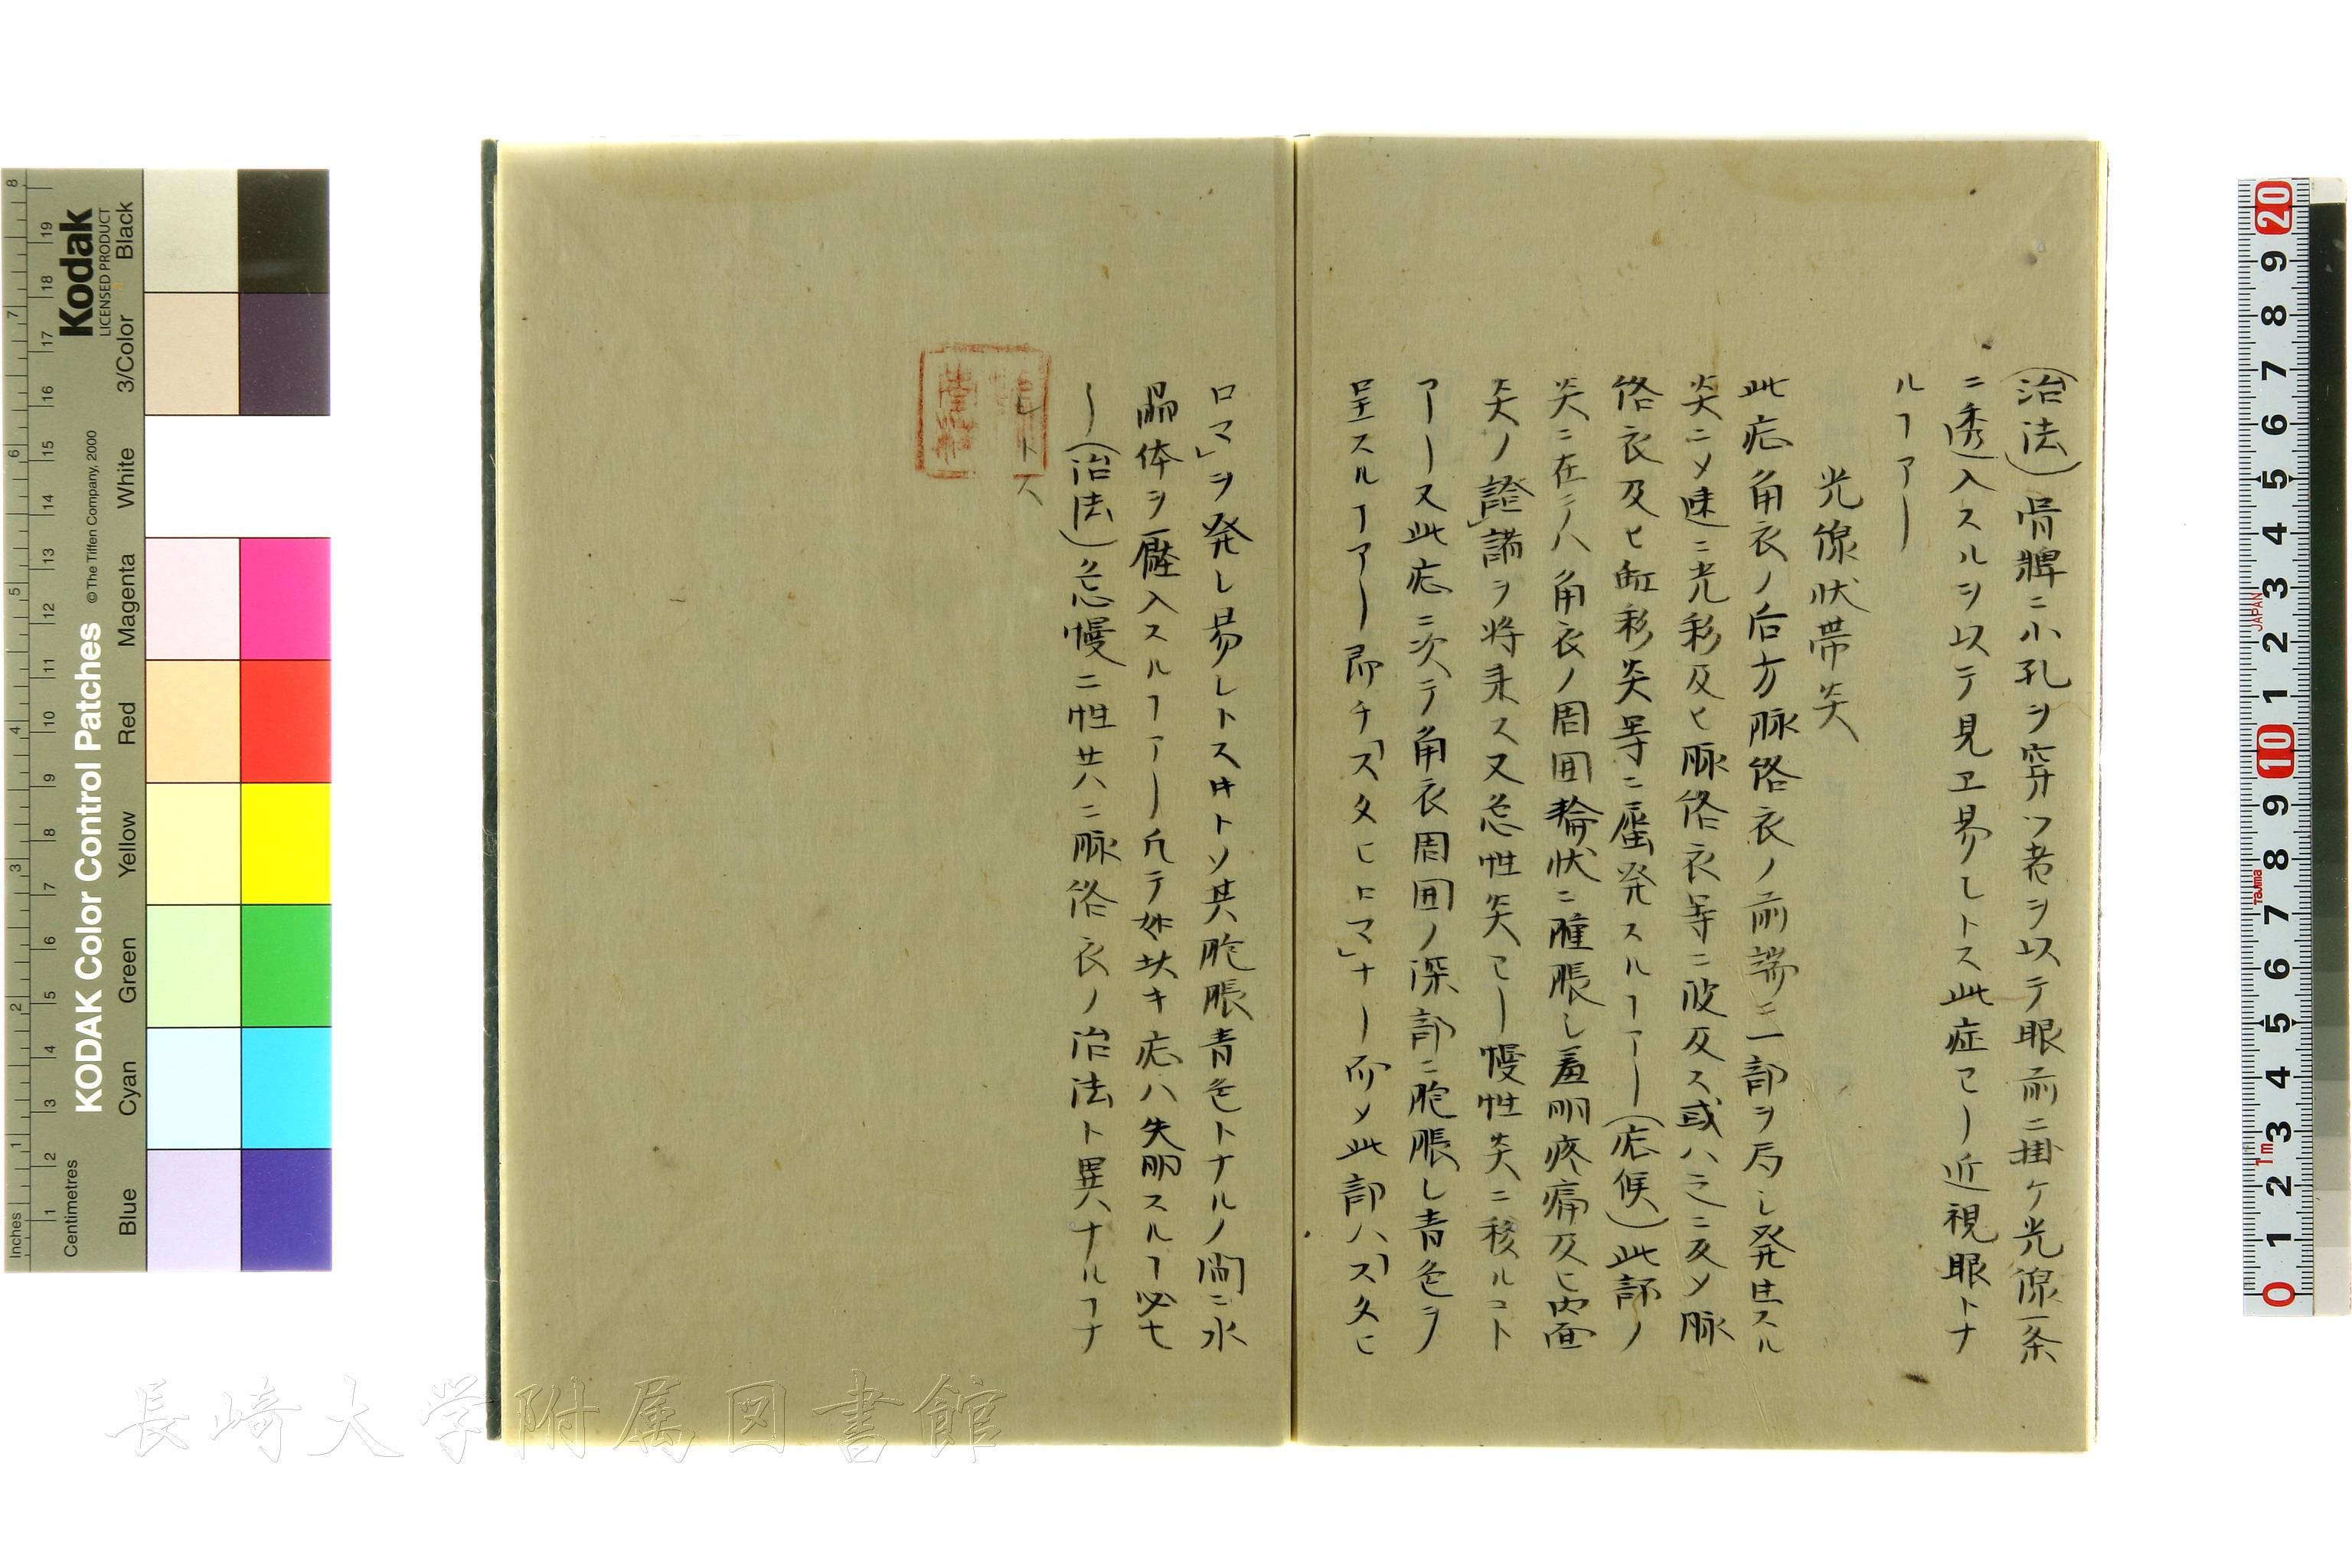 (治法)骨牌ニ小孔ヲ穿ツ者ヲ以テ眼前ニ掛ケ光線一条
ニ透入スルヲ以テ見ヱ易シトス此症ヿー近視眼トナ
ルヿアー
光線状帯炎
此症角衣ノ后方脉絡衣ノ前端ニ一部ヲ局し発生スル
炎ニ〆速ニ光彩及ヒ脉絡衣等ニ波及ス或ハ之ニ反〆脉
絡衣及ヒ虹彩炎等ニ継発スルヿアー(症候)此部ノ
炎ニ在テハ角衣ノ周囲輪状ニ腫脹し羞明疼痛及ヒ内面
炎ノ證諸ヲ将来ス又急性炎ヿー慢性炎ニ移ルコト
アー又此症ニ次テ角衣周囲ノ深部ニ胞脹し青色ヲ
呈スルヿアー即チ「スタヒロマ」ナー而〆此部ハ「スタヒ
ロマ」ヲ発し易しトス其胞脹青色トナルノ間ニ水
晶体ヲ壓入スルヿアー凡テ如斯キ症ハ失明スルヿ必セ
ー(治法)急慢ニ性共ニ脉絡衣ノ治法ト異ナルヿナ
しトス
Kodak
LICENSED PRODUCT
KODAK Color Control Patches
© The Tiffen Company, 2000
Inches
Centimetres
Blue Cyan Green Yellow Red Magenta White 3/Color Black
JAPAN
Tajima
1m
長崎大学附属図書館